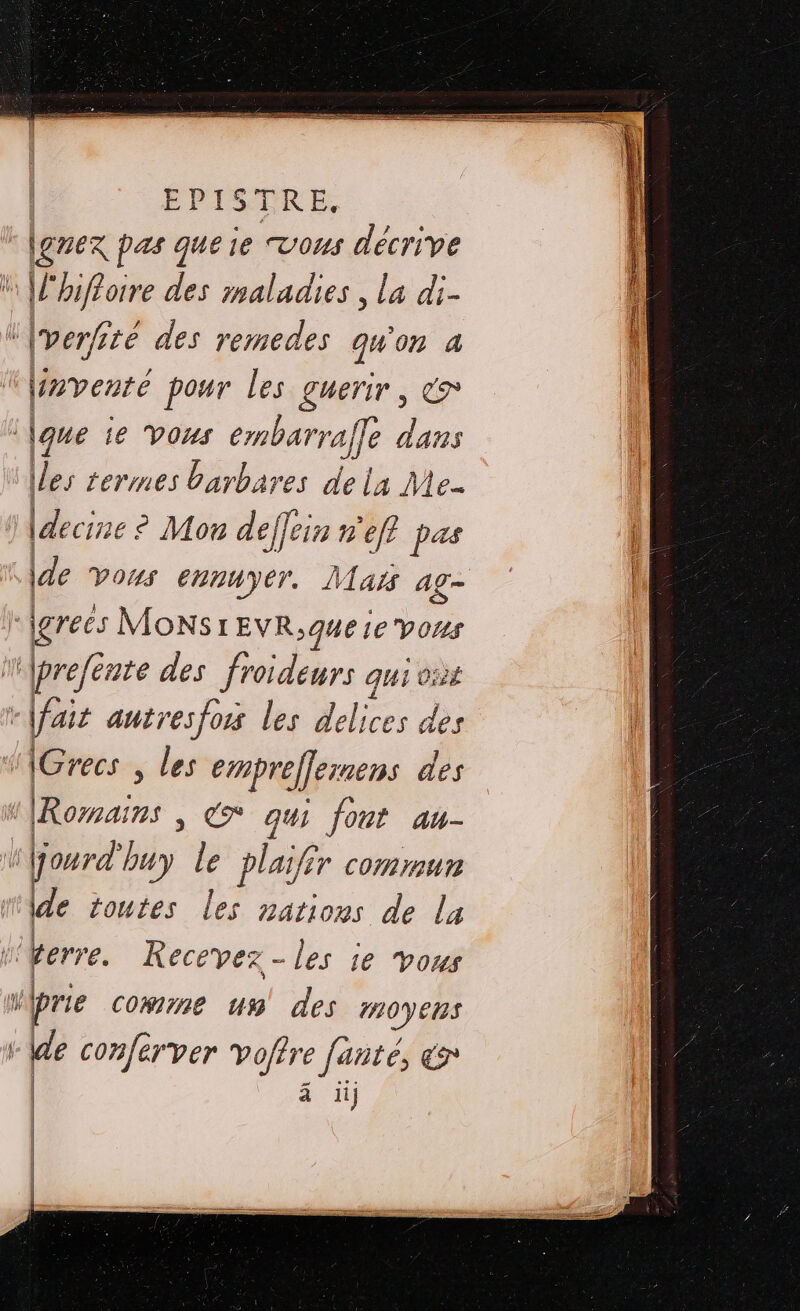 EPISTRE.
gnez pas que ie vous décrive
l'hiſtoire des maladies, la di-
verſité des remedes qu'on a
inventé pour les guerir, &
que ie vous embarraſſe dans
les termes barbares de la Me-
decine? Mon deſſein n'eſt pas
de vous ennuyer. Mais ag-
greés MONSIEVR, que ie vous
preſente des froideurs qui ont
fait autresfois les delices des
Grecs, les empreſſemens des
Romains, & qui font au-
jourd'huy le plaiſir commun
de toutes les nations de la
terre. Recevez-les ie vous
prie comme un des moyens
de conſerver voſtre ſanté, &
ã iij